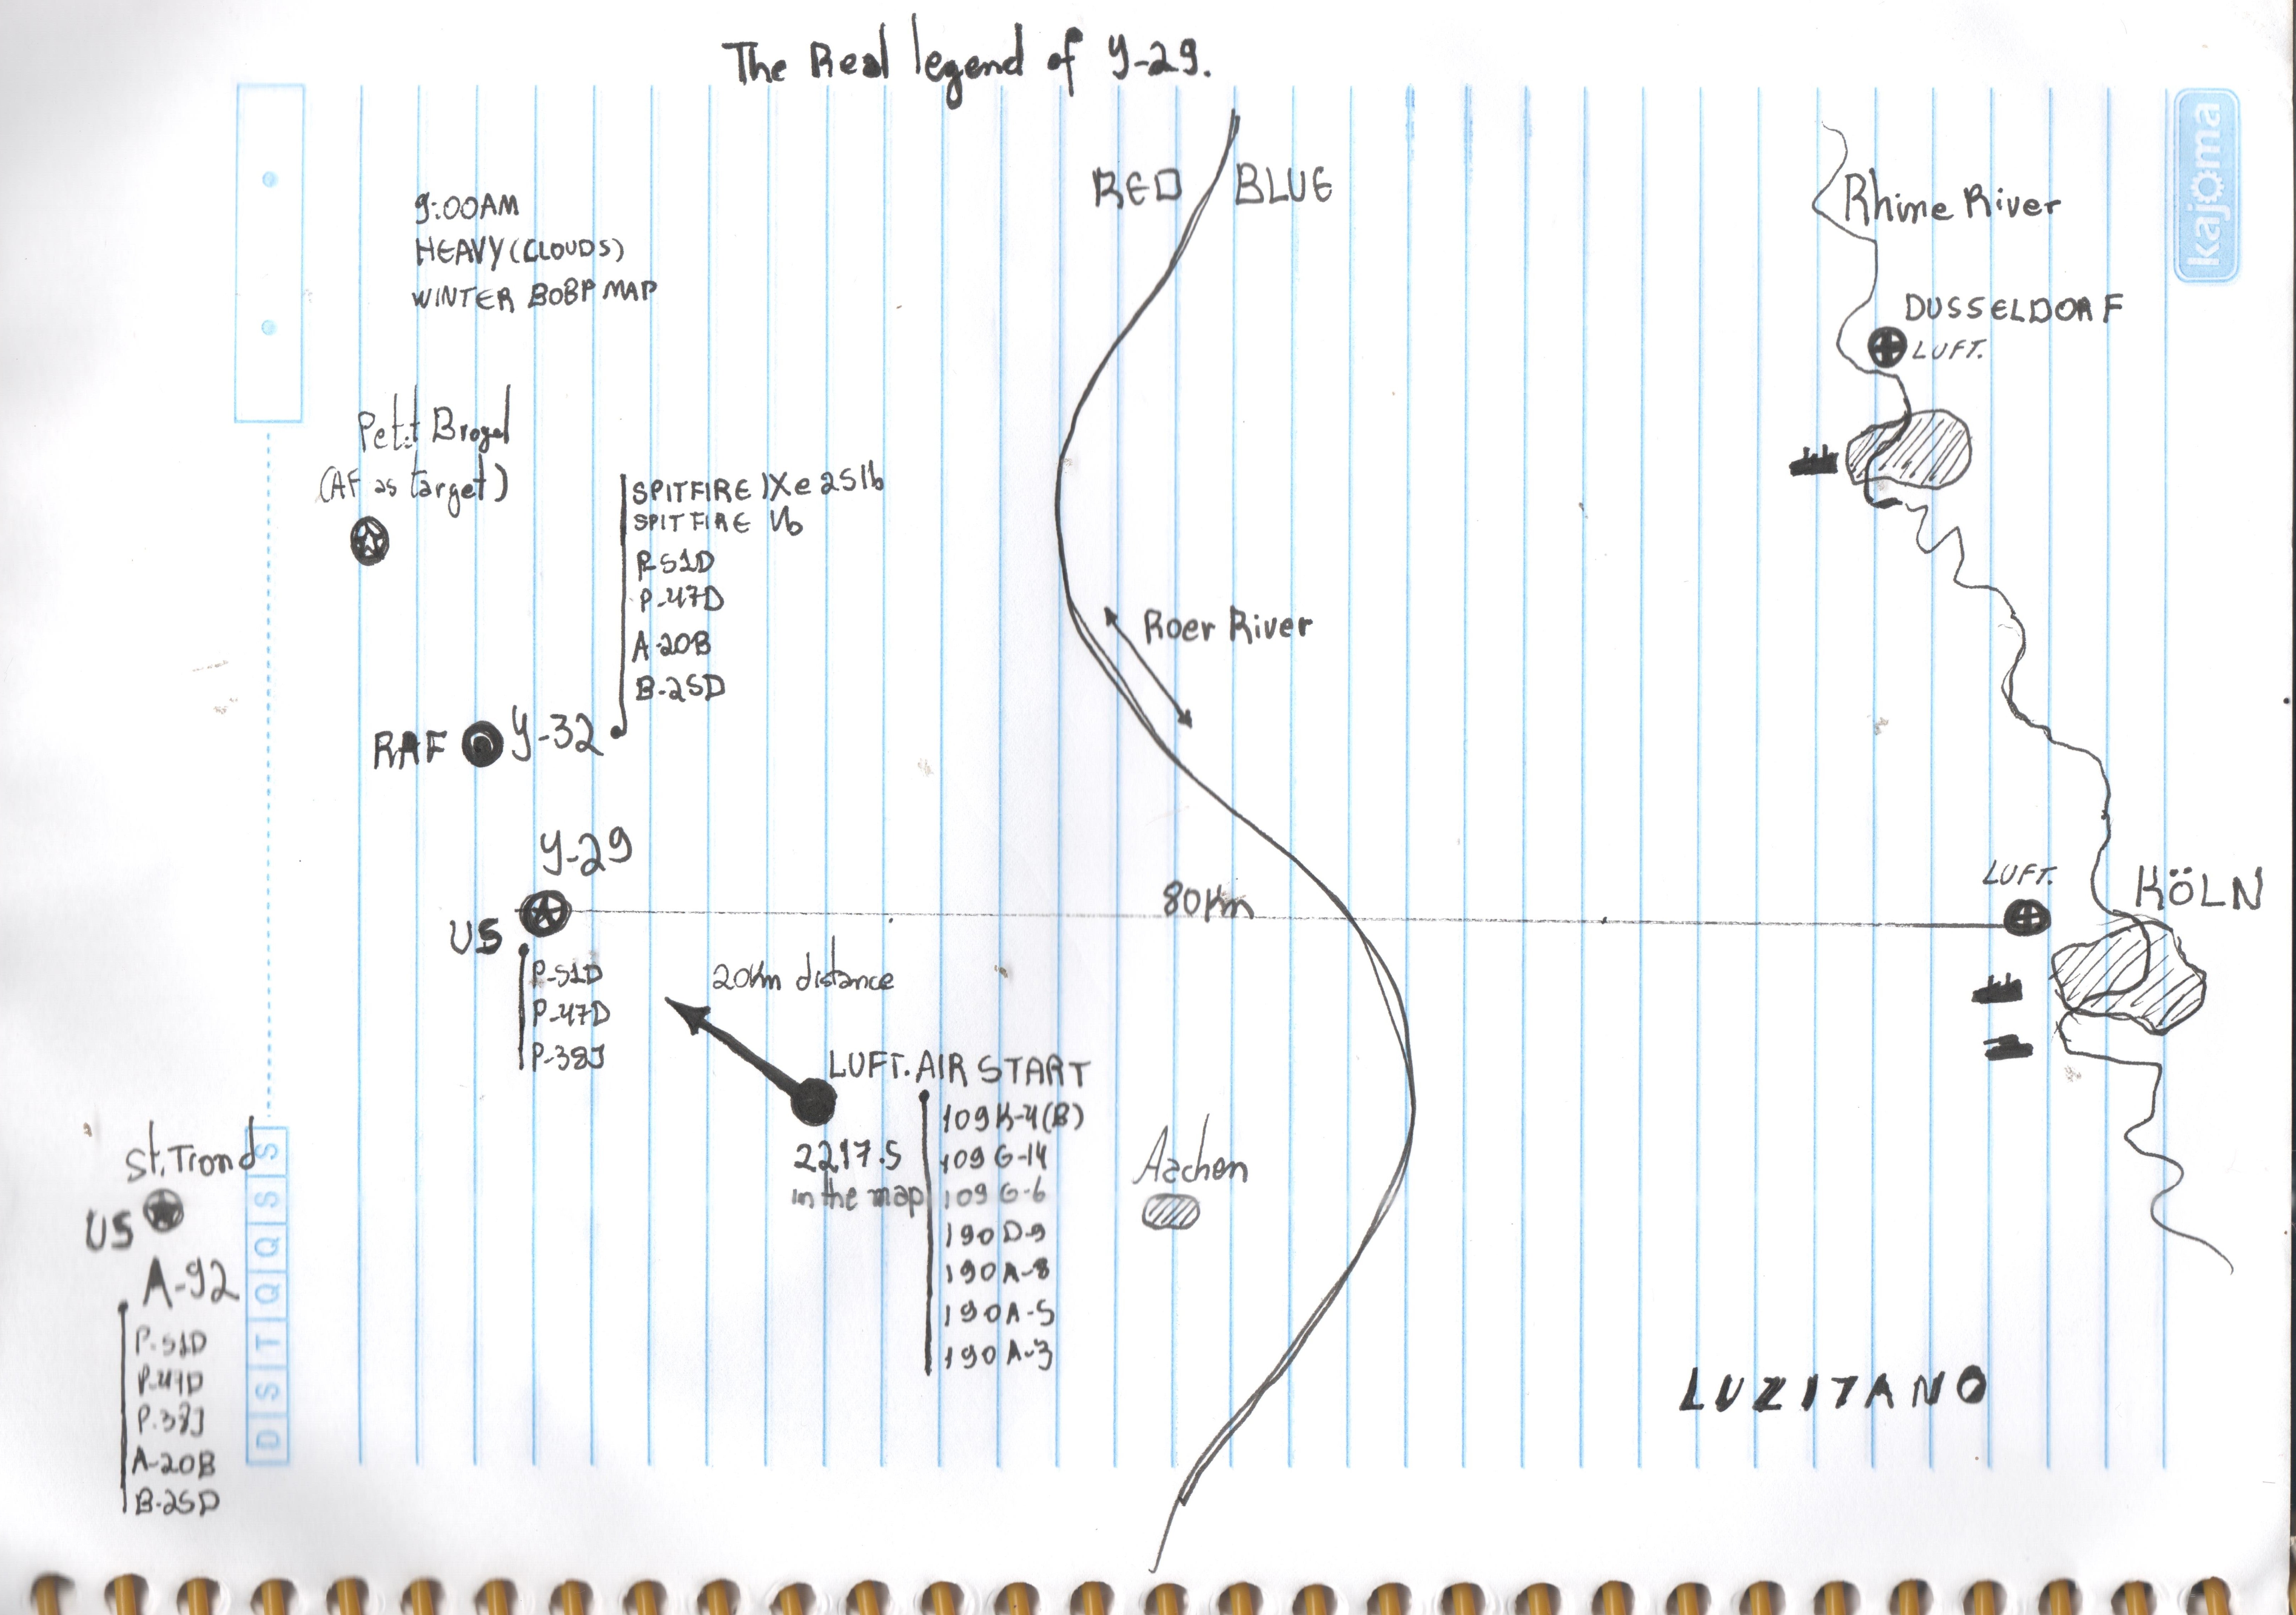 The Real legend of Y-29.
9:00AM
HEAVY (CLOUDS)
WINTER BOBP MAP
RED
BLUE
Rhine River
kajoma
DUSSELDORF
LUFT.
Petit Brogel
(AF as target)
SPITFIRE IXe 25lb
SPITFIRE Vb
P-51D
P-47D
A-20B
B-25D
RAF
Y-32
Roer River
Y-29
US
P-51D
P-47D
P-38J
80Km
LUFT.
KÖLN
20Km distance
LUFT. AIR START
2217.5
in the map
109 K-4 (B)
109 G-14
109 G-6
190 D-9
190 A-8
190 A-5
190 A-3
Aachen
St. Trond
US
A-92
P-51D
P-47D
P-38J
A-20B
B-25D
D S T Q Q S S
LUZITANO